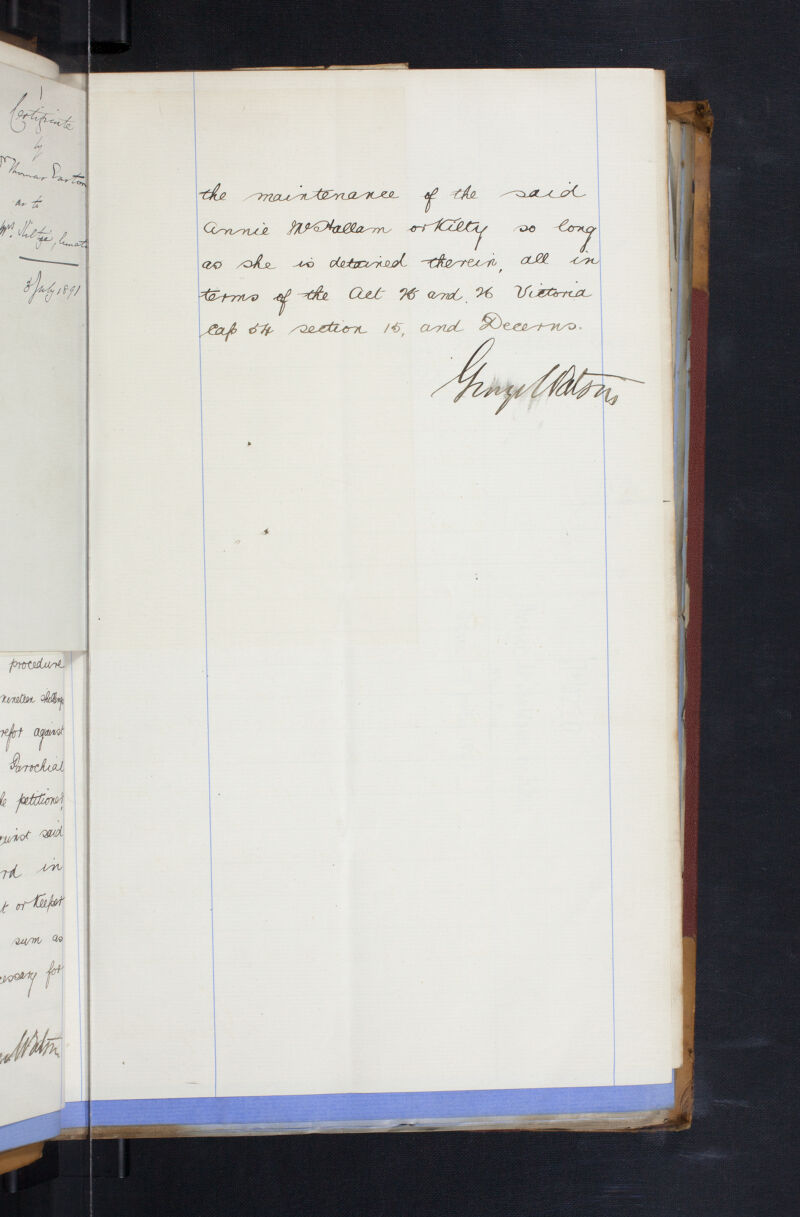 Certificate
by
Dr Thomas Easton
as to
Mrs. Kiltie, lunatic
3 July 1891
procedure
nineteen shillings
refor against
Parochial
le petitioner,
gainst said
rd in
t or Keeper
sum as
cessary for
Watson
the maintenance of the said
Annie McHallam or Kilty so long
as she is detained therein, all in
terms of the Act 25 and 26 Victoria
Cap 54 section 15, and Decerns.
George Watson